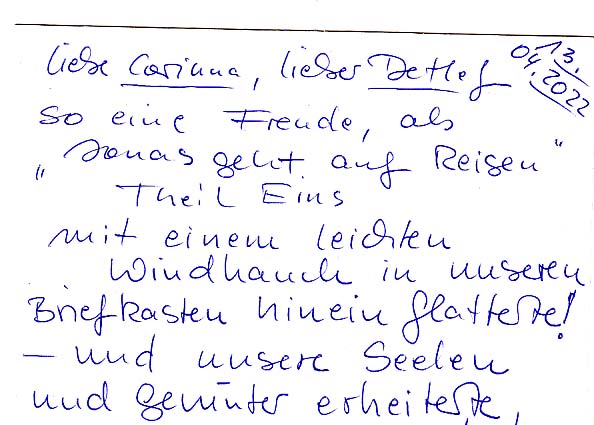 liebe Corinna, lieber Detlef
13.
04.2022
so eine Freude, als
„Jonas geht auf Reisen“
Theil Eins
mit einem leichten
Windhauch in unseren
Briefkasten hinein flatterte!
– und unsere Seelen
und Gemüter erheiterte,